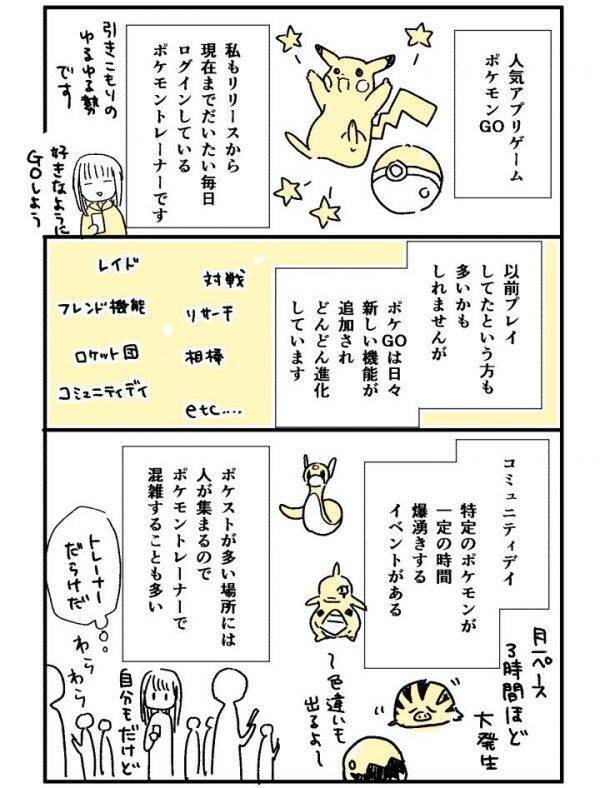 人気アプリゲーム
ポケモンGO
私もリリースから
現在までだいたい毎日
ログインしている
ポケモントレーナーです
引きこもりの
ゆるゆる勢
です
好きなように
GOしよう
以前プレイ
してたという方も
多いかも
しれませんが
ポケGOは日々
新しい機能が
追加され
どんどん進化
しています
レイド
対戦
フレンド機能
リサーチ
ロケット団
相棒
コミュニティデイ
etc....
コミュニティデイ
特定のポケモンが
一定の時間
爆湧きする
イベントがある
月一ペース
3時間ほど
大発生
〜色違いも
出るよ〜
ポケストが多い場所には
人が集まるので
ポケモントレーナーで
混雑することも多い
トレーナー
だらけだ
わら
わら
自分もだけど